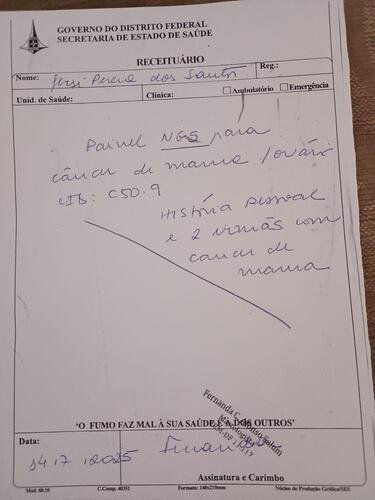 GOVERNO DO DISTRITO FEDERAL
SECRETARIA DE ESTADO DE SAÚDE
RECEITUÁRIO
Nome: Pereira dos Santos Reg.:
Unid. de Saúde: Clínica: Ambulatório Emergência
Painel NGS para
câncer de mama / ovário
CID: C50.9
História pessoal
e 2 irmãs com
câncer de
mama
Fernanda
Mastologista
'O FUMO FAZ MAL À SUA SAÚDE E A DOS OUTROS'
Data:
14.7.2025
Assinatura e Carimbo
Mod. 60.10 C.Comp. 40351 Formato: 148x210mm Núcleo de Produção Gráfica/SES